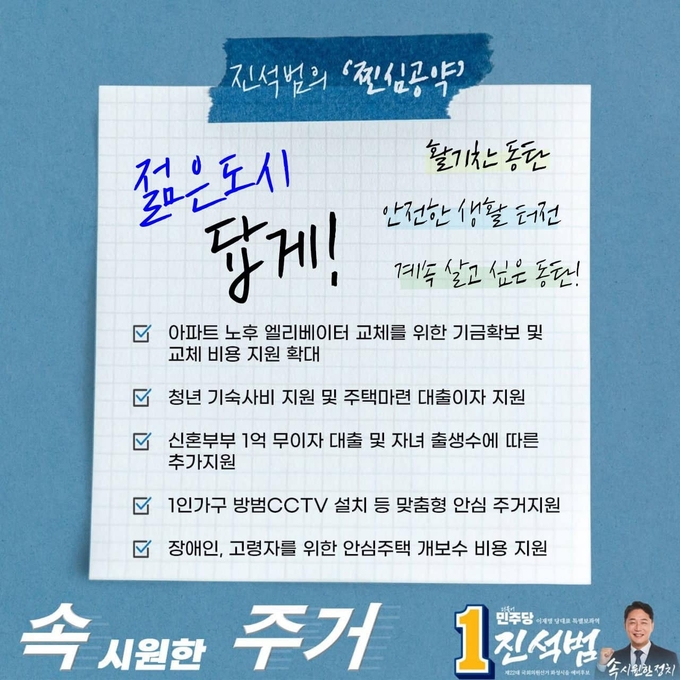 진석범의 '찐심공약'
젊은도시
답게!
활기찬 동탄
안전한 생활 터전
계속 살고 싶은 동탄!
아파트 노후 엘리베이터 교체를 위한 기금확보 및
교체 비용 지원 확대
청년 기숙사비 지원 및 주택마련 대출이자 지원
신혼부부 1억 무이자 대출 및 자녀 출생수에 따른
추가지원
1인가구 방범CCTV 설치 등 맞춤형 안심 주거지원
장애인, 고령자를 위한 안심주택 개보수 비용 지원
속 시원한 주거
더불어
민주당 이재명 당대표 특별보좌역
1 진석범
제22대 국회의원선거 화성시을 예비후보
속시원한정치